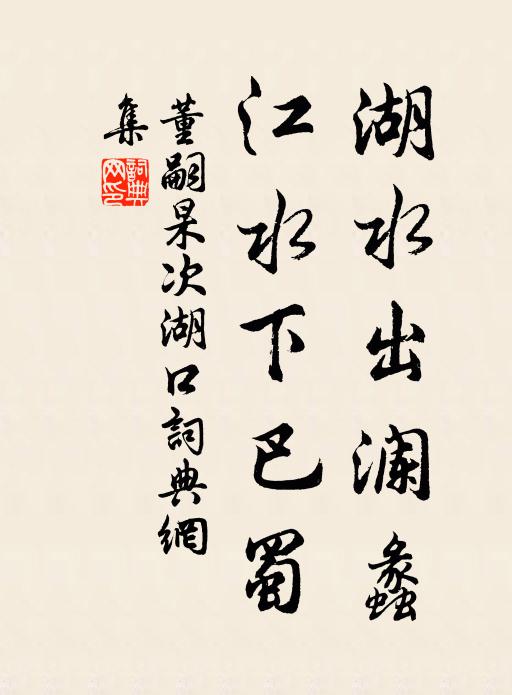 湖水出澜蠡
江水下巴蜀
董嗣杲次湖口詞典網
集
詞典網印